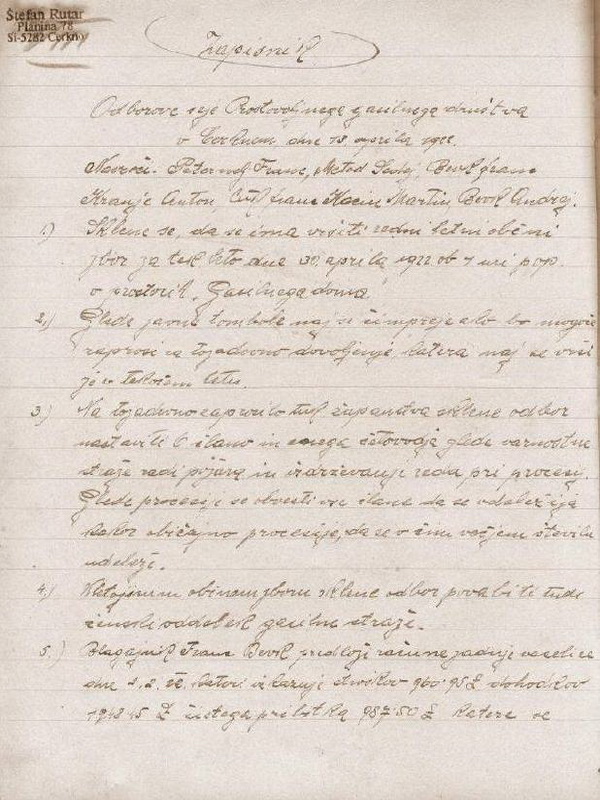 Štefan Rutar
Planina 78
SI-5282 Cerkno
Zapisnik
Odborove seje Prostovoljnega gasilnega društva
v Cerknem dne 13 aprila 1922.
Navzoči: Peternelj Franc, Metod Sedej Bevk franc
Kranjc Anton, franc Kacin Martin Bevk Andrej.
1.) Sklene se, da se ima vršiti redni letni občni
zbor za tek. leto dne 30. aprila 1922 ob 7 uri pop.
v prostorih Gasilnega doma
2.) Glede javne tombole naj se čimpreje ako bo mogoče
zaprosi za tozadevno dovoljenje, katera naj se vrši
še v tekočem letu.
3.) Na tozadevno zaprosilo tuk. županstva sklene odbor
nastaviti 6 članov in enega četovodja glede varnostne
straže radi in vzdrževanje reda pri procesij.
Glede procesije se obvesti vse člane da se udeležijo
kakor običajno procesije, da se v čim večjem številu
udeleži.
4.) K letnjemu občnem zboru sklene odbor povabiti tudi
ženski oddelek gasilne straže.
5.) Blagajnik Franc Bevk predloži račune zadnje veselice
dne kateri izkazuje stroškov 960.95 £ dohodkov
1948.45 £ čistega prebitka 987.50 £ katere se